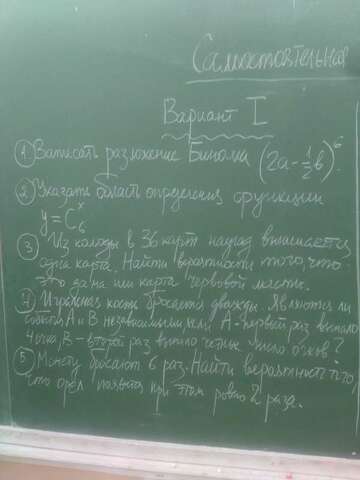 Самостоятельная
Вариант I
① Записать разложение бинома (2a - 1/2 b)^6.
② Указать область определения функции
y = C_6^x
③ Из колоды в 36 карт наугад вынимается
одна карта. Найти вероятность того, что
это дама или карта червовой масти.
④ Игральная кость бросается дважды. Являются ли
события А и В независимыми, если А - первый раз выпало
4 очка, В - второй раз выпало четное число очков?
⑤ Монету бросают 6 раз. Найти вероятность того,
что орел появится при этом ровно 2 раза.